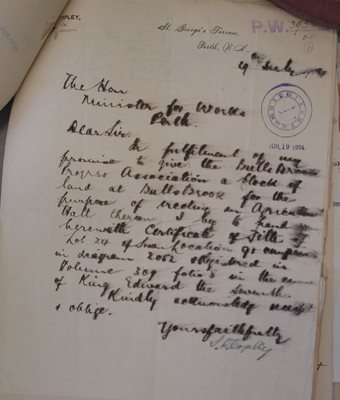 OPLEY,
St. George's Terrace,
Perth, W.A.
P.W.
19th July 1904
JUL 19 1904
The Hon
Minister for Works
Perth.
Dear Sir.
In fulfilment of my
promise to give the Bulls Brook
Progress Association a block of
land at Bulls Brook for the
purpose of erecting an Agricultural
Hall thereon I beg to hand you
herewith Certificate of Title of
Lot 24 of Swan Location 91 comprised
in diagram 2002 registered in
Volume 309 folio in the name
of King Edward the Seventh.
Kindly acknowledge receipt
& oblige.
Yours faithfully
S. Copley